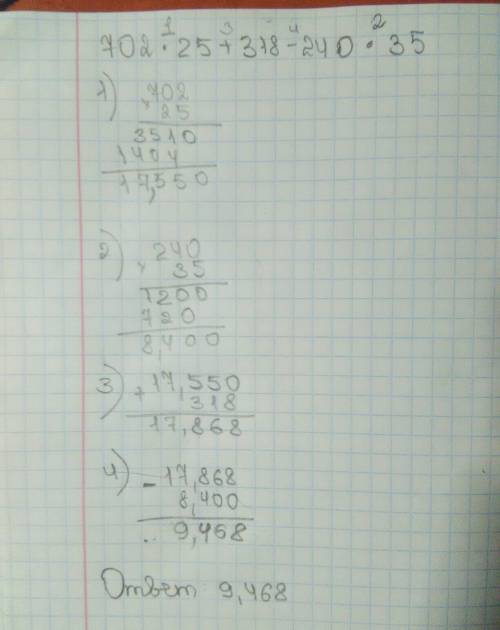 1 3 4 2
702 · 25 + 318 - 240 · 35
1) × 702
25
3510
1404
17,550
2) × 240
35
1200
720
8,400
3) + 17,550
318
17,868
4) - 17,868
8,400
9,468
Ответ 9,468